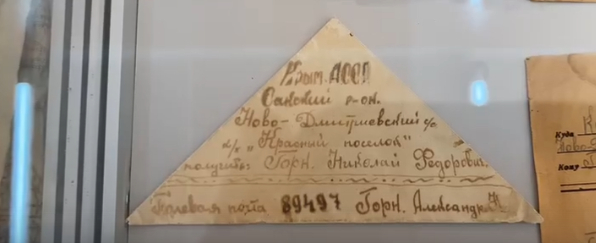 Крым. АССР
Сакский р-он.
Ново-Дмитриевский с/с
к/х "Красный поселок"
получить: Горн. Николай Федорович.
Полевая почта 89497 Горн. Александр Н
Куда
Кому